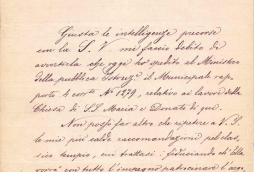 Giusta le intelligenze precorse
con la S. V. mi faccio debito di
avvertirla che oggi ho spedito al Ministero
della pubblica Istruz.e il Municipale rap
porto 4 corr.e N° 1279, relativo ai lavori della
Chiesa di S.S. Maria e Donato di qui.
Non posso far altro che ripetere a V. S.
le mie più calde raccomandazioni pel
sico tempio, cui trattasi: fiduciando ch'Ella
con tutto l'impegno patrocinare